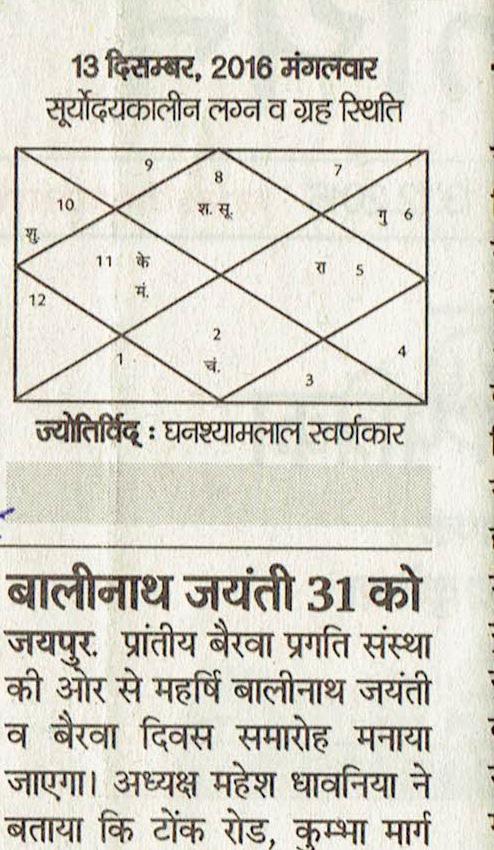 13 दिसम्बर, 2016 मंगलवार
सूर्योदयकालीन लग्न व ग्रह स्थिति
9
8
7
10
श. सू.
गु 6
शु.
11 के
रा 5
मं.
12
2
1
चं.
4
3
ज्योतिर्विद् : घनश्यामलाल स्वर्णकार
बालीनाथ जयंती 31 को
जयपुर. प्रांतीय बैरवा प्रगति संस्था
की ओर से महर्षि बालीनाथ जयंती
व बैरवा दिवस समारोह मनाया
जाएगा। अध्यक्ष महेश धावनिया ने
बताया कि टोंक रोड, कुम्भा मार्ग